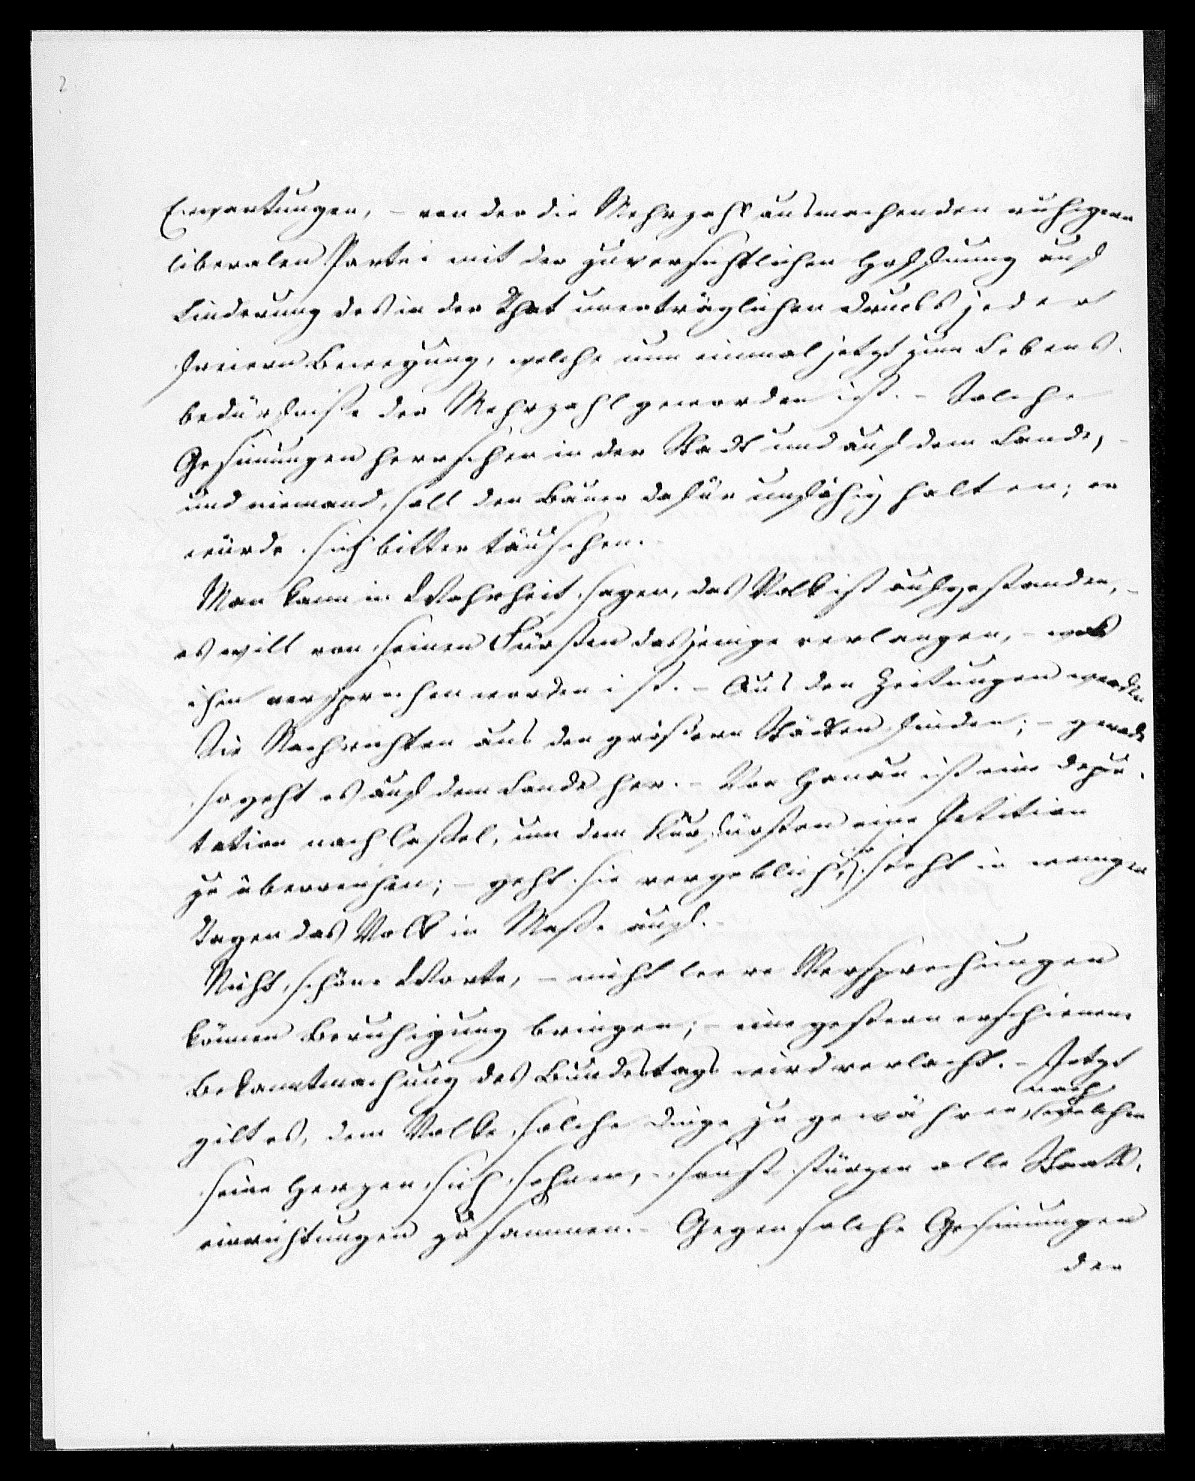 2
Erwartungen, – von der die Mehrzahl ausmachenden ruhigern
liberalen Partei mit der zuversichtlichen Hoffnung auf
Linderung des in der That unerträglichen Drucks jeder
freiern Bewegung, welche nun einmal jetzt zum Lebens-
bedürfnisse der Mehrzahl geworden ist. – Solche
Gesinnungen herrschen in der Stadt und auf dem Lande, –
und niemand soll den Bauer dafür unfähig halten; er
würde sich bitter täuschen.
Man kann in Wahrheit sagen, das Volk ist aufgestanden, –
es will von seinen Fürsten dasjenige verlangen, – was
ihm versprochen worden ist. – Aus den Zeitungen werden
Sie Nachrichten aus den größern Städten finden; – gerade
so geht es auf dem Lande her. – Von Hanau ist eine Depu-
tation nach Cassel, um dem Kurfürsten eine Petition
zu überreichen; – geht sie vergeblich, so steht in wenigen
Tagen das Volk in Masse auf. –
Nicht schöne Worte, – nicht leere Versprechungen
können Beruhigung bringen; – eine gestern erschienene
Bekanntmachung des Bundestags wird verlacht. – Jetzt
gilt es, dem Volke solche Dinge zu gewähren, nach welchen
seine Herzen sich sehnen, – sonst stürzen alle Staats-
einrichtungen zusammen. – Gegen solche Gesinnungen
der